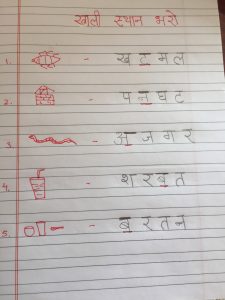 खाली स्थान भरो
1. - ख ट म ल
2. - प न घ ट
3. - अ ज ग र
4. - श र ब त
5. - ब र त न